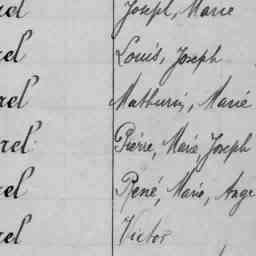 Joseph, Marie
Louis, Joseph
Mathurin, Marie
Pierre, Marie, Joseph
René, Marie, Ange
Victor